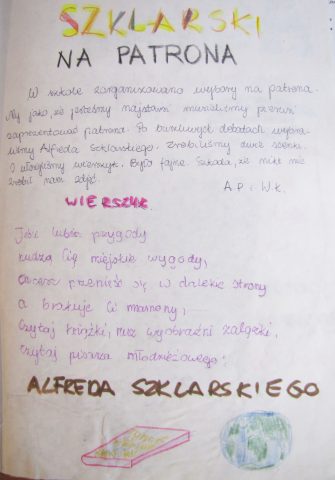 SZKLARSKI
NA PATRONA
W szkole zorganizowano wybory na patrona.
My jako, że jesteśmy najstarsi musieliśmy pierwsi
zaprezentować patrona. Po burzliwych debatach wybra-
liśmy Alfreda Szklarskiego. Zrobiliśmy dwie scenki
i ułożyliśmy wierszyk. Było fajnie. Szkoda, że nikt nie
zrobił nam zdjęć.
A.P i W.K.
WIERSZYK
Jeśli lubisz przygody
nudzą Cię miejskie wygody,
Chcesz przenieść się w dalekie strony
a brakuje Ci mamony,
Czytaj książki, rusz wyobraźni załączki,
czytaj pisarza młodzieżowego:
ALFREDA SZKLARSKIEGO